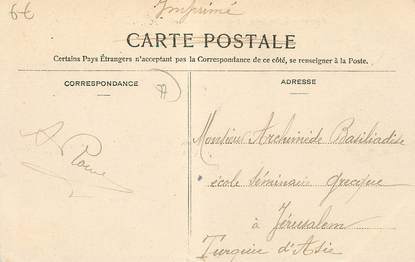 6€
Imprimé
CARTE POSTALE
Certains Pays Étrangers n'acceptant pas la Correspondance de ce côté, se renseigner à la Poste.
CORRESPONDANCE
ADRESSE
Monsieur Archimède Basiliadise
école Séminair grecque
à Jérusalem
Turquie d'Asie